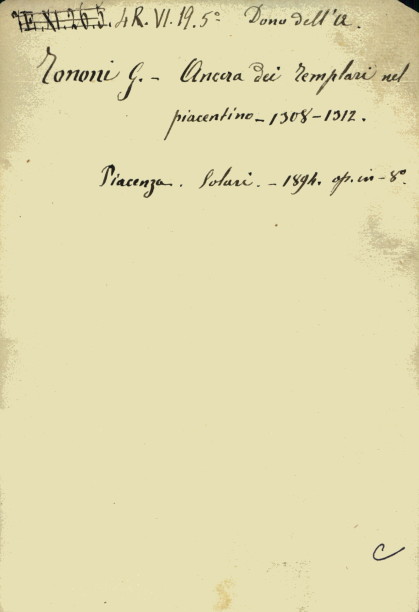 E.XI.26.5. 4R.VI.19.5° Dono dell'A.
Tononi G. - Ancora dei Templari nel
piacentino - 1308-1312.
Piacenza. Solari. - 1894. op. in-8°.
C